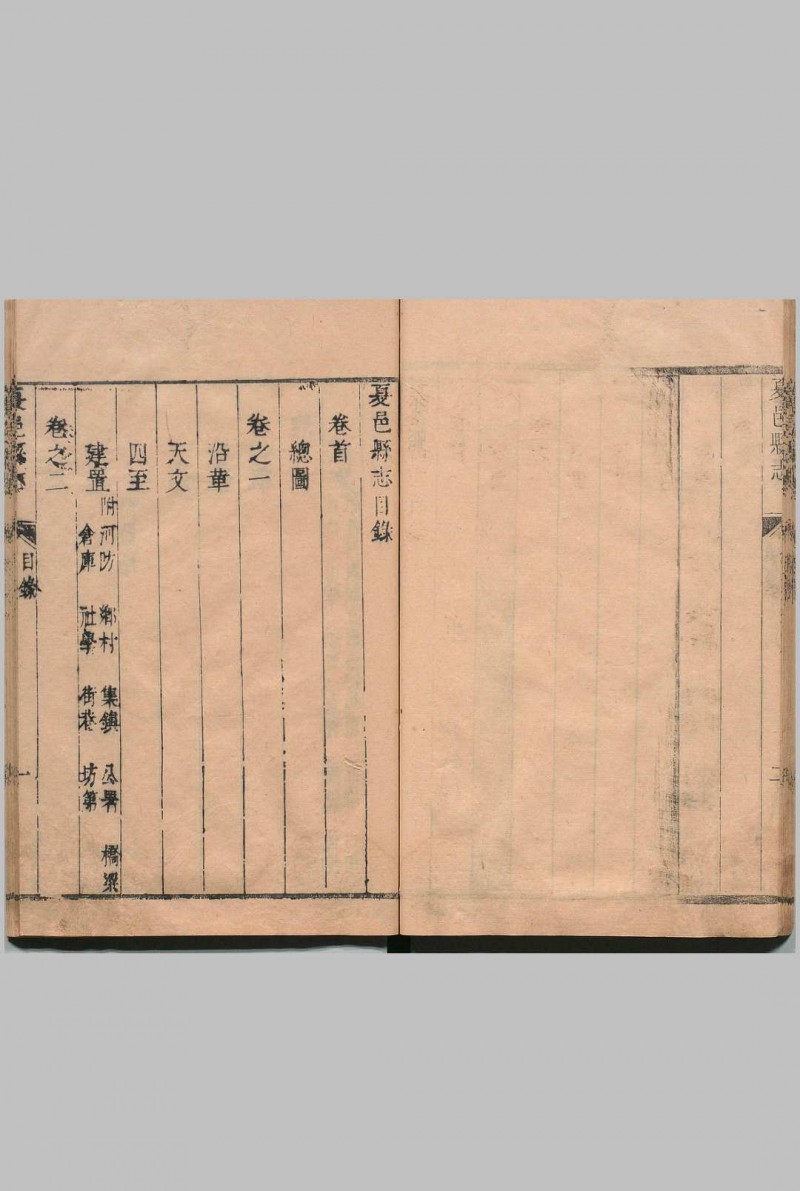 夏邑縣志
二
夏邑縣志目錄
卷首
總圖
卷之一
沿革
天文
四至
建置
附河防 鄉村 集鎮 公署 橋梁
倉庫 社學 街巷 坊第
卷之二
夏邑縣志
目錄
一